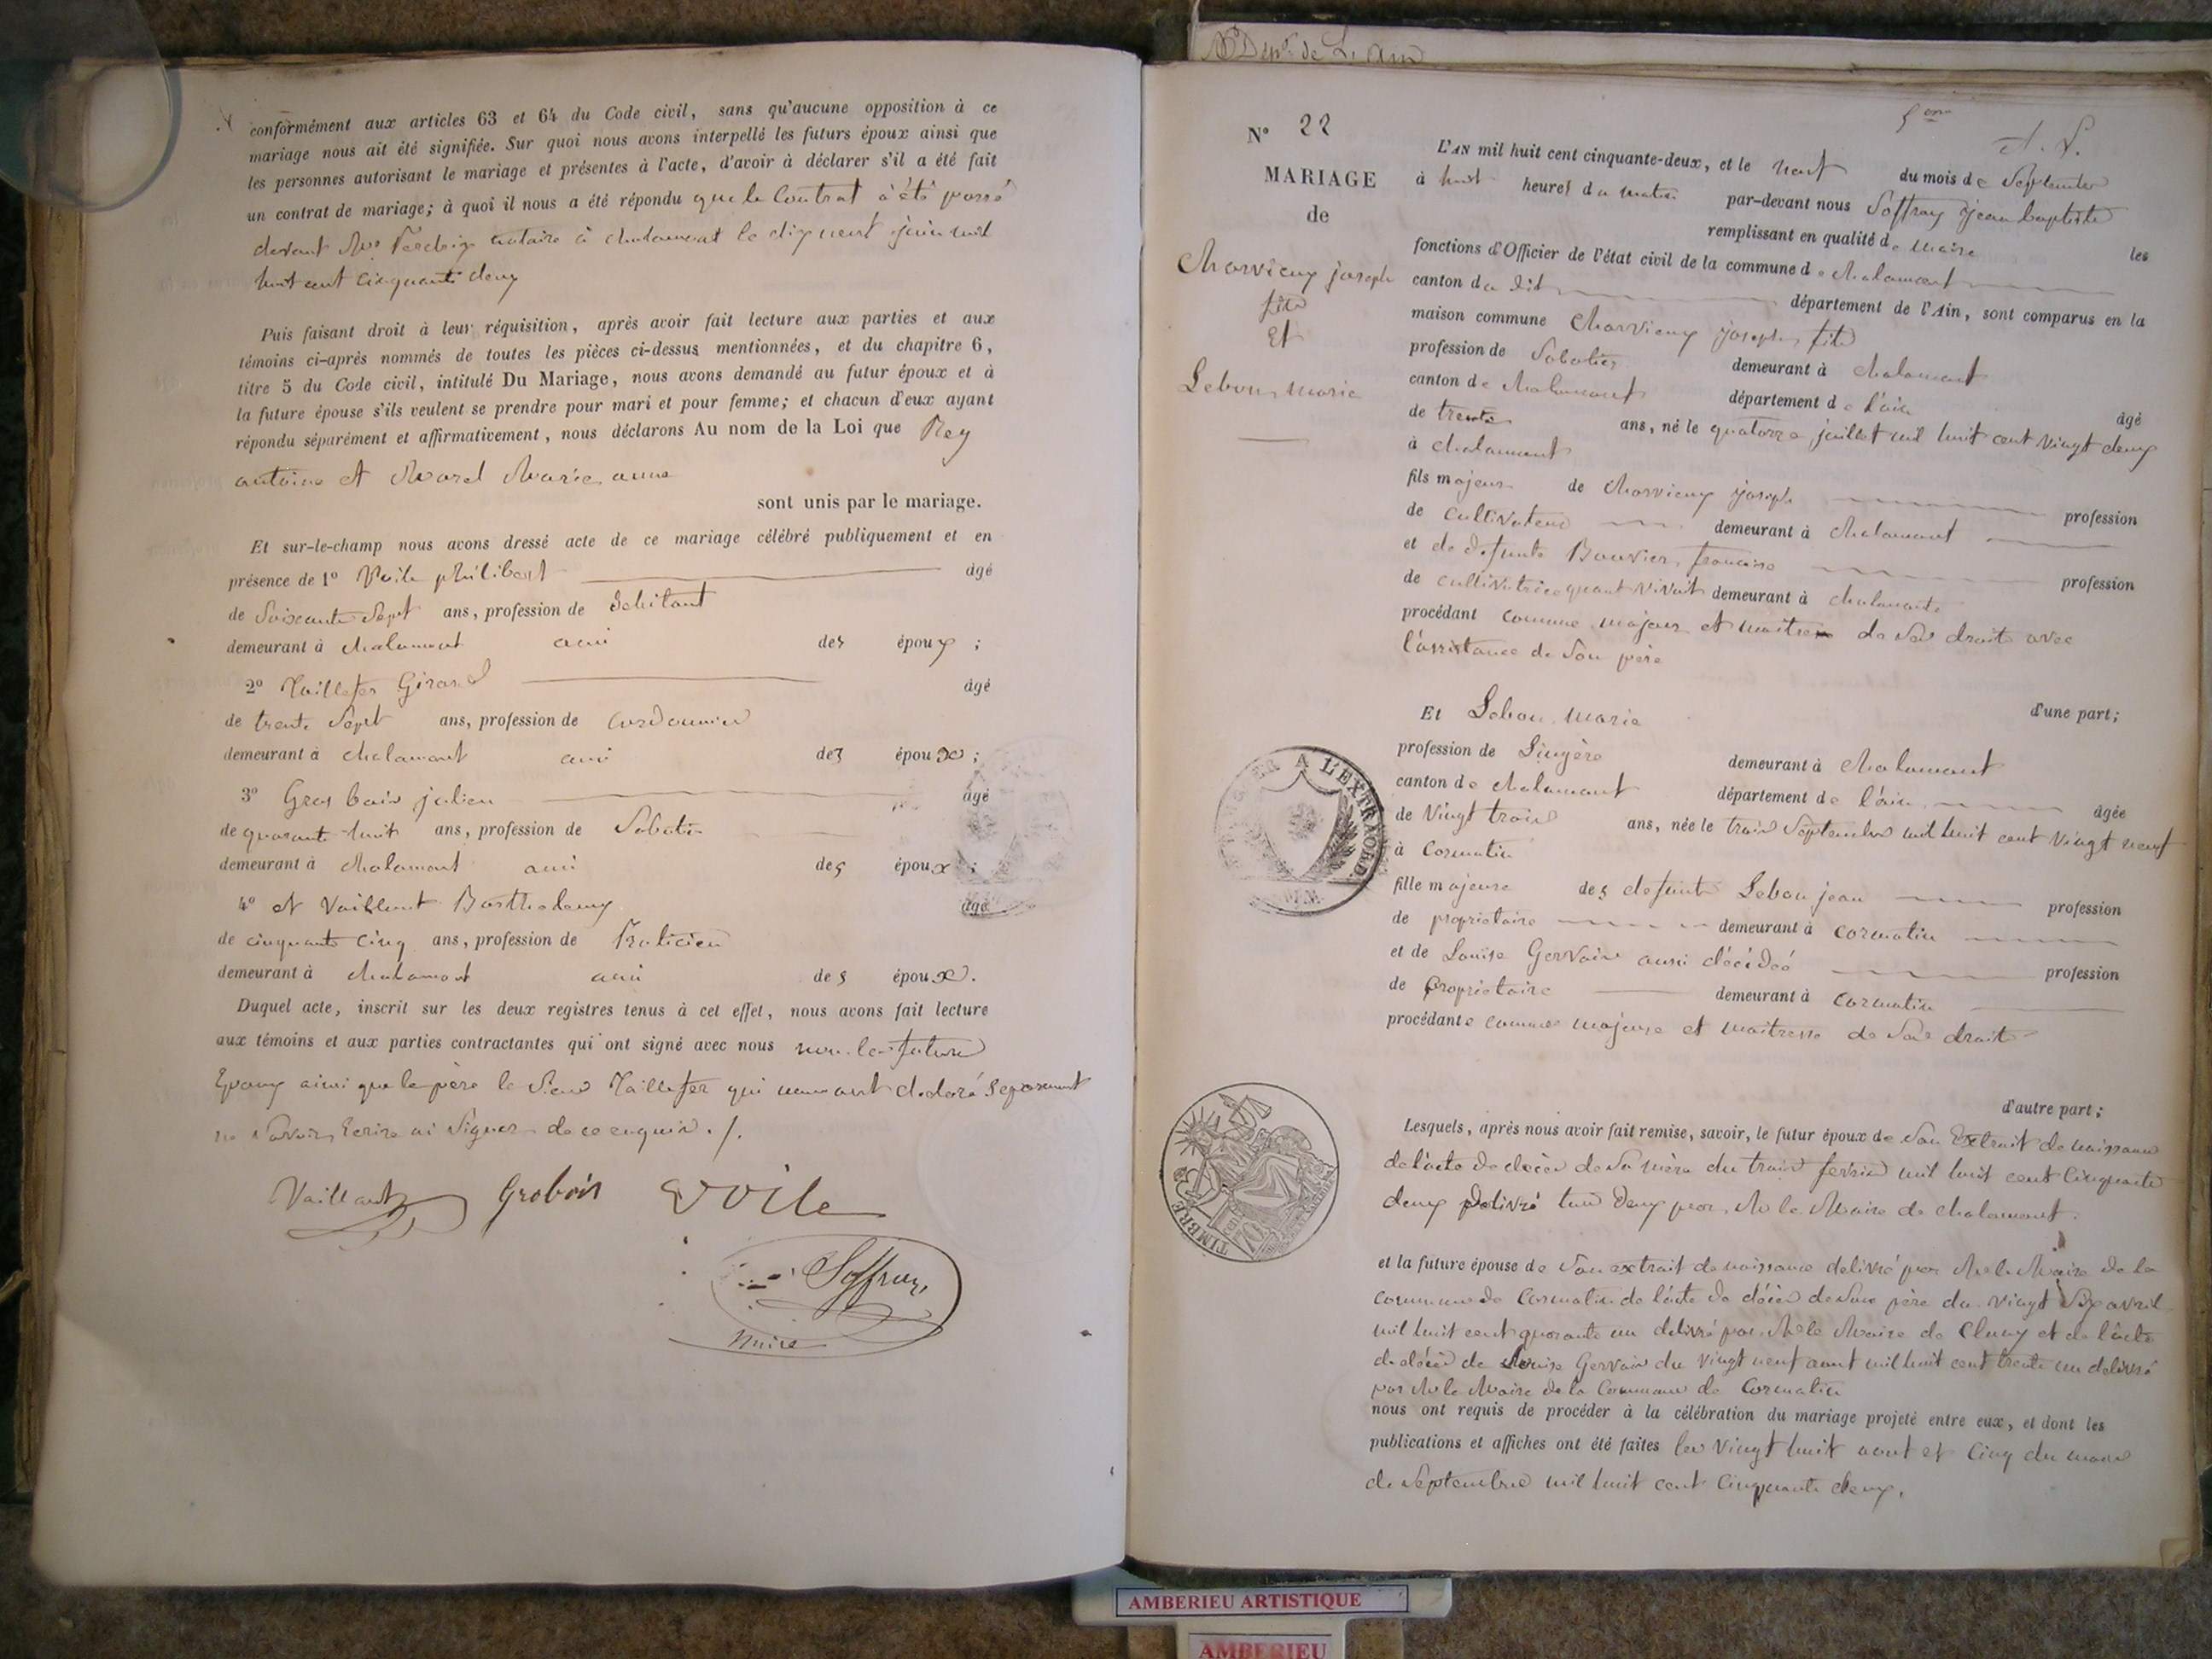 conformément aux articles 63 et 64 du Code civil, sans qu'aucune opposition à ce
mariage nous ait été signifiée. Sur quoi nous avons interpellé les futurs époux ainsi que
les personnes autorisant le mariage et présentes à l'acte, d'avoir à déclarer s'il a été fait
un contrat de mariage; à quoi il nous a été répondu que le Contrat à été passé
devant notaire à chalamont le dix neuf juin mil
huit cent cinquante deux
Puis faisant droit à leur réquisition, après avoir fait lecture aux parties et aux
témoins ci-après nommés de toutes les pièces ci-dessus mentionnées, et du chapitre 6,
titre 5 du Code civil, intitulé Du Mariage, nous avons demandé au futur époux et à
la future épouse s'ils veulent se prendre pour mari et pour femme; et chacun d'eux ayant
répondu séparément et affirmativement, nous déclarons Au nom de la Loi que Rey
antoine et Morel Marie anne
sont unis par le mariage.
Et sur-le-champ nous avons dressé acte de ce mariage célébré publiquement et en
présence de 1° Voile philibert âgé
de Soixante Sept ans, profession de Débitant
demeurant à chalamont ami des époux ;
2° Taillefer Girard âgé
de trente Sept ans, profession de Cordonnier
demeurant à chalamont ami des époux ;
3° Gros bois julien âgé
de quarante huit ans, profession de Sabotier
demeurant à chalamont ami des époux ;
4° et Vaillant Barthelemy âgé
de cinquante cinq ans, profession de Praticien
demeurant à chalamont ami des époux.
Duquel acte, inscrit sur les deux registres tenus à cet effet, nous avons fait lecture
aux témoins et aux parties contractantes qui ont signé avec nous non les futurs
Epoux ainsi que le père le Sieur Taillefer qui nous ont déclaré Separement
ne Savoir Ecrire ni Signer de ce enquis ./.
Vaillant Grobois Voile
Soffray
maire
Dépt. de L'ain
N° 22
MARIAGE
de
Charvieux joseph
fils
Et
Lebon marie
L'AN mil huit cent cinquante-deux, et le neuf du mois de Septembre
à huit heures du matin par-devant nous Soffray jean baptiste
remplissant en qualité de maire les
fonctions d'Officier de l'état civil de la commune de chalamont
canton du dit département de l'Ain, sont comparus en la
maison commune Charvieux joseph fils
profession de Sabotier demeurant à chalamont
canton de chalamont département de l'ain âgé
de trente ans, né le quatorze juillet mil huit cent vingt deux
à chalamont
fils majeur de charvieux joseph profession
de cultivateur demeurant à chalamont
et de défunte Bouvier francoise profession
de cultivatrice quant vivait demeurant à chalamont
procédant comme majeur et maitre de Ses droits avec
l'assistance de Son père
d'une part;
Et Lebon marie
profession de Lingère demeurant à chalamont
canton de chalamont département de l'ain âgée
de vingt trois ans, née le trois Septembre mil huit cent vingt neuf
à Cormatin
fille majeure des defunts Lebon jean profession
de propriétaire demeurant à cormatin
et de Louise Gervais aussi décédée profession
de propriétaire demeurant à cormatin
procédante comme majeure et maitresse de Ses droits
d'autre part;
Lesquels, après nous avoir fait remise, savoir, le futur époux de Son Extrait de naissance
de l'acte de décès de Sa mère du trois fevrier mil huit cent Cinquante
deux Delivré tous deux par Mr le Maire de chalamont.
et la future épouse de Son extrait de naissance delivré par Mr le Maire de la
Commune de Cormatin de l'acte de décès de Son père du vingt Six avril
mil huit cent quarante un delivré par Mr le Maire de Cluny et de l'acte
de décès de Louise Gervais du vingt neuf aout mil huit cent trente un delivré
par Mr le Maire de la Commune de Cormatin
nous ont requis de procéder à la célébration du mariage projeté entre eux, et dont les
publications et affiches ont été faites les vingt huit aout et Cinq du mois
de Septembre mil huit cent Cinquante deux.
A L'EXTRAORD.
TIMBRE
AMBERIEU ARTISTIQUE
AMBERIEU